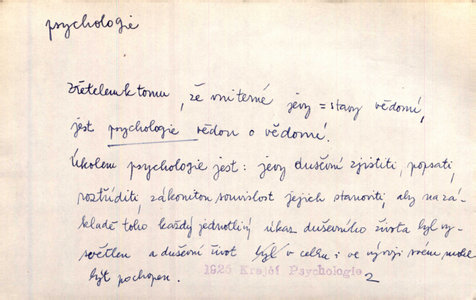 psychologie
Zřetelem k tomu, že vniterné jevy = stavy vědomí,
jest psychologie vědou o vědomí.
Úkolem psychologie jest: jevy duševní zjistiti, popsati,
roztříditi, zákonitou souvislost jejich stanoviti, aby na zá-
kladě toho každý jednotlivý úkaz duševního života byl vy-
světlen a duševní život byl v celku i ve vývoji svém mohl
být pochopen.
1925 Krejčí Psychologie
2